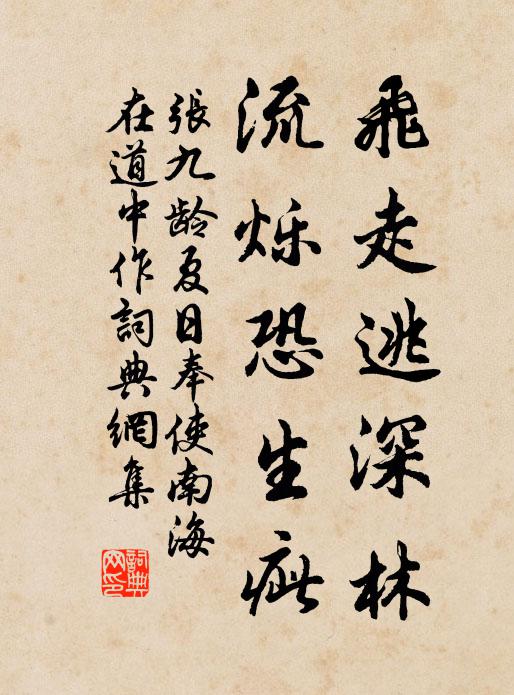 飛走逃深林
流烁恐生疵
張九龄夏日奉使南海
在道中作詞典網集
詞典网印